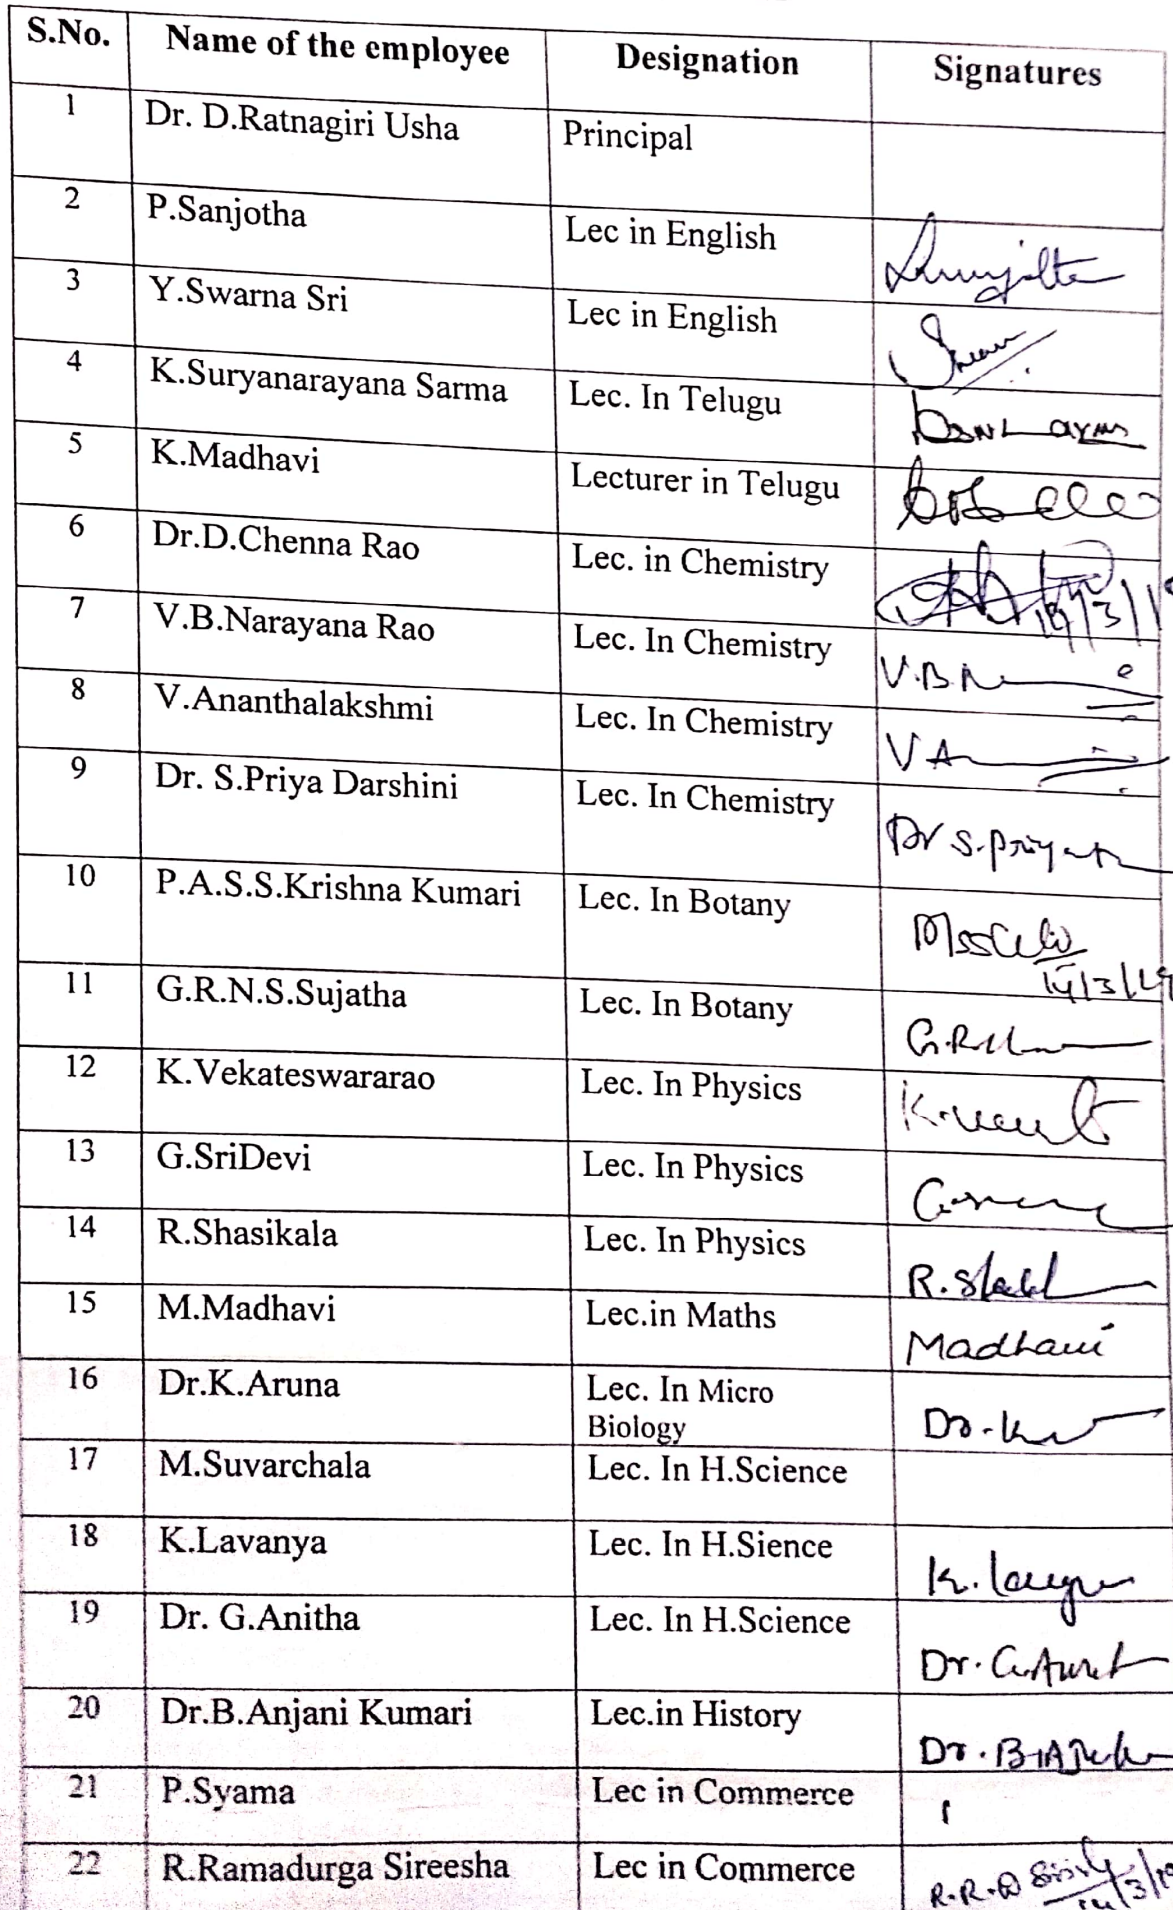 S.No. Name of the employee Designation Signatures
1 Dr. D.Ratnagiri Usha Principal
2 P.Sanjotha Lec in English
3 Y.Swarna Sri Lec in English
4 K.Suryanarayana Sarma Lec. In Telugu
5 K.Madhavi Lecturer in Telugu
6 Dr.D.Chenna Rao Lec. in Chemistry
7 V.B.Narayana Rao Lec. In Chemistry
8 V.Ananthalakshmi Lec. In Chemistry
9 Dr. S.Priya Darshini Lec. In Chemistry
10 P.A.S.S.Krishna Kumari Lec. In Botany
11 G.R.N.S.Sujatha Lec. In Botany
12 K.Vekateswararao Lec. In Physics
13 G.SriDevi Lec. In Physics
14 R.Shasikala Lec. In Physics
15 M.Madhavi Lec.in Maths Madhavi
16 Dr.K.Aruna Lec. In Micro
Biology
17 M.Suvarchala Lec. In H.Science
18 K.Lavanya Lec. In H.Sience
19 Dr. G.Anitha Lec. In H.Science
20 Dr.B.Anjani Kumari Lec.in History
21 P.Syama Lec in Commerce
22 R.Ramadurga Sireesha Lec in Commerce